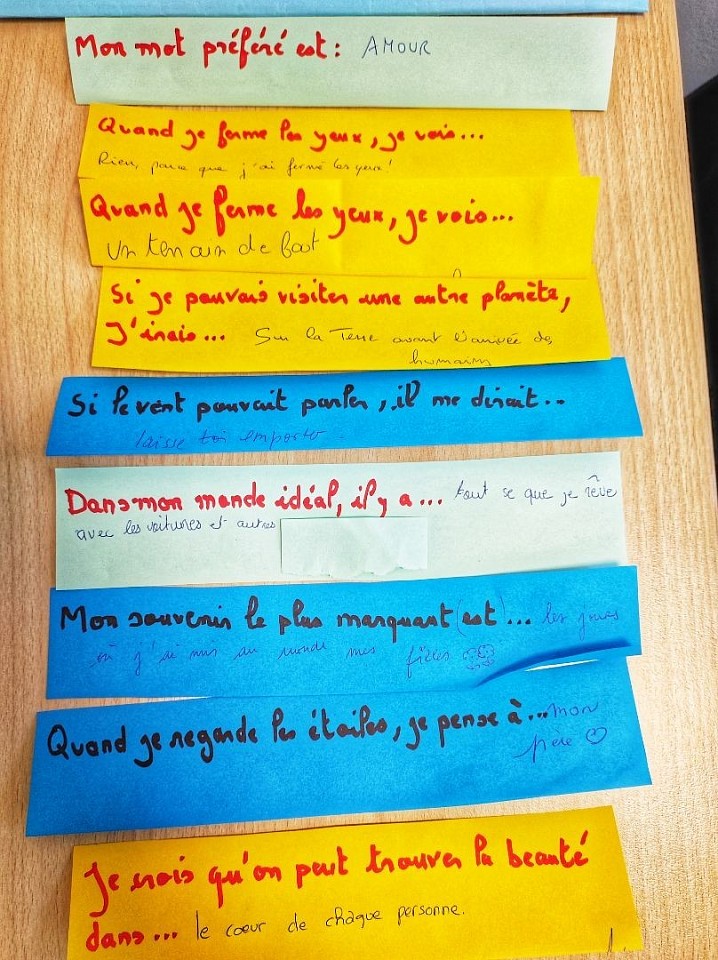 Mon mot préféré est : AMOUR
Quand je ferme les yeux, je vois...
Rien, parce que j'ai fermé les yeux!
Quand je ferme les yeux, je vois...
Un terrain de foot
Si je pouvais visiter une autre planète,
J'irais... Sur la Terre avant l'arrivée des
humains
Si le vent pouvait parler, il me dirait..
laisse toi emporter
Dans mon monde idéal, il y a... tout se que je rêve
avec les voitures et autres
Mon souvenir le plus marquant (est)... les jours
où j'ai mis au monde mes filles
Quand je regarde les étoiles, je pense à... mon
père ♡
Je crois qu'on peut trouver la beauté
dans... le cœur de chaque personne.